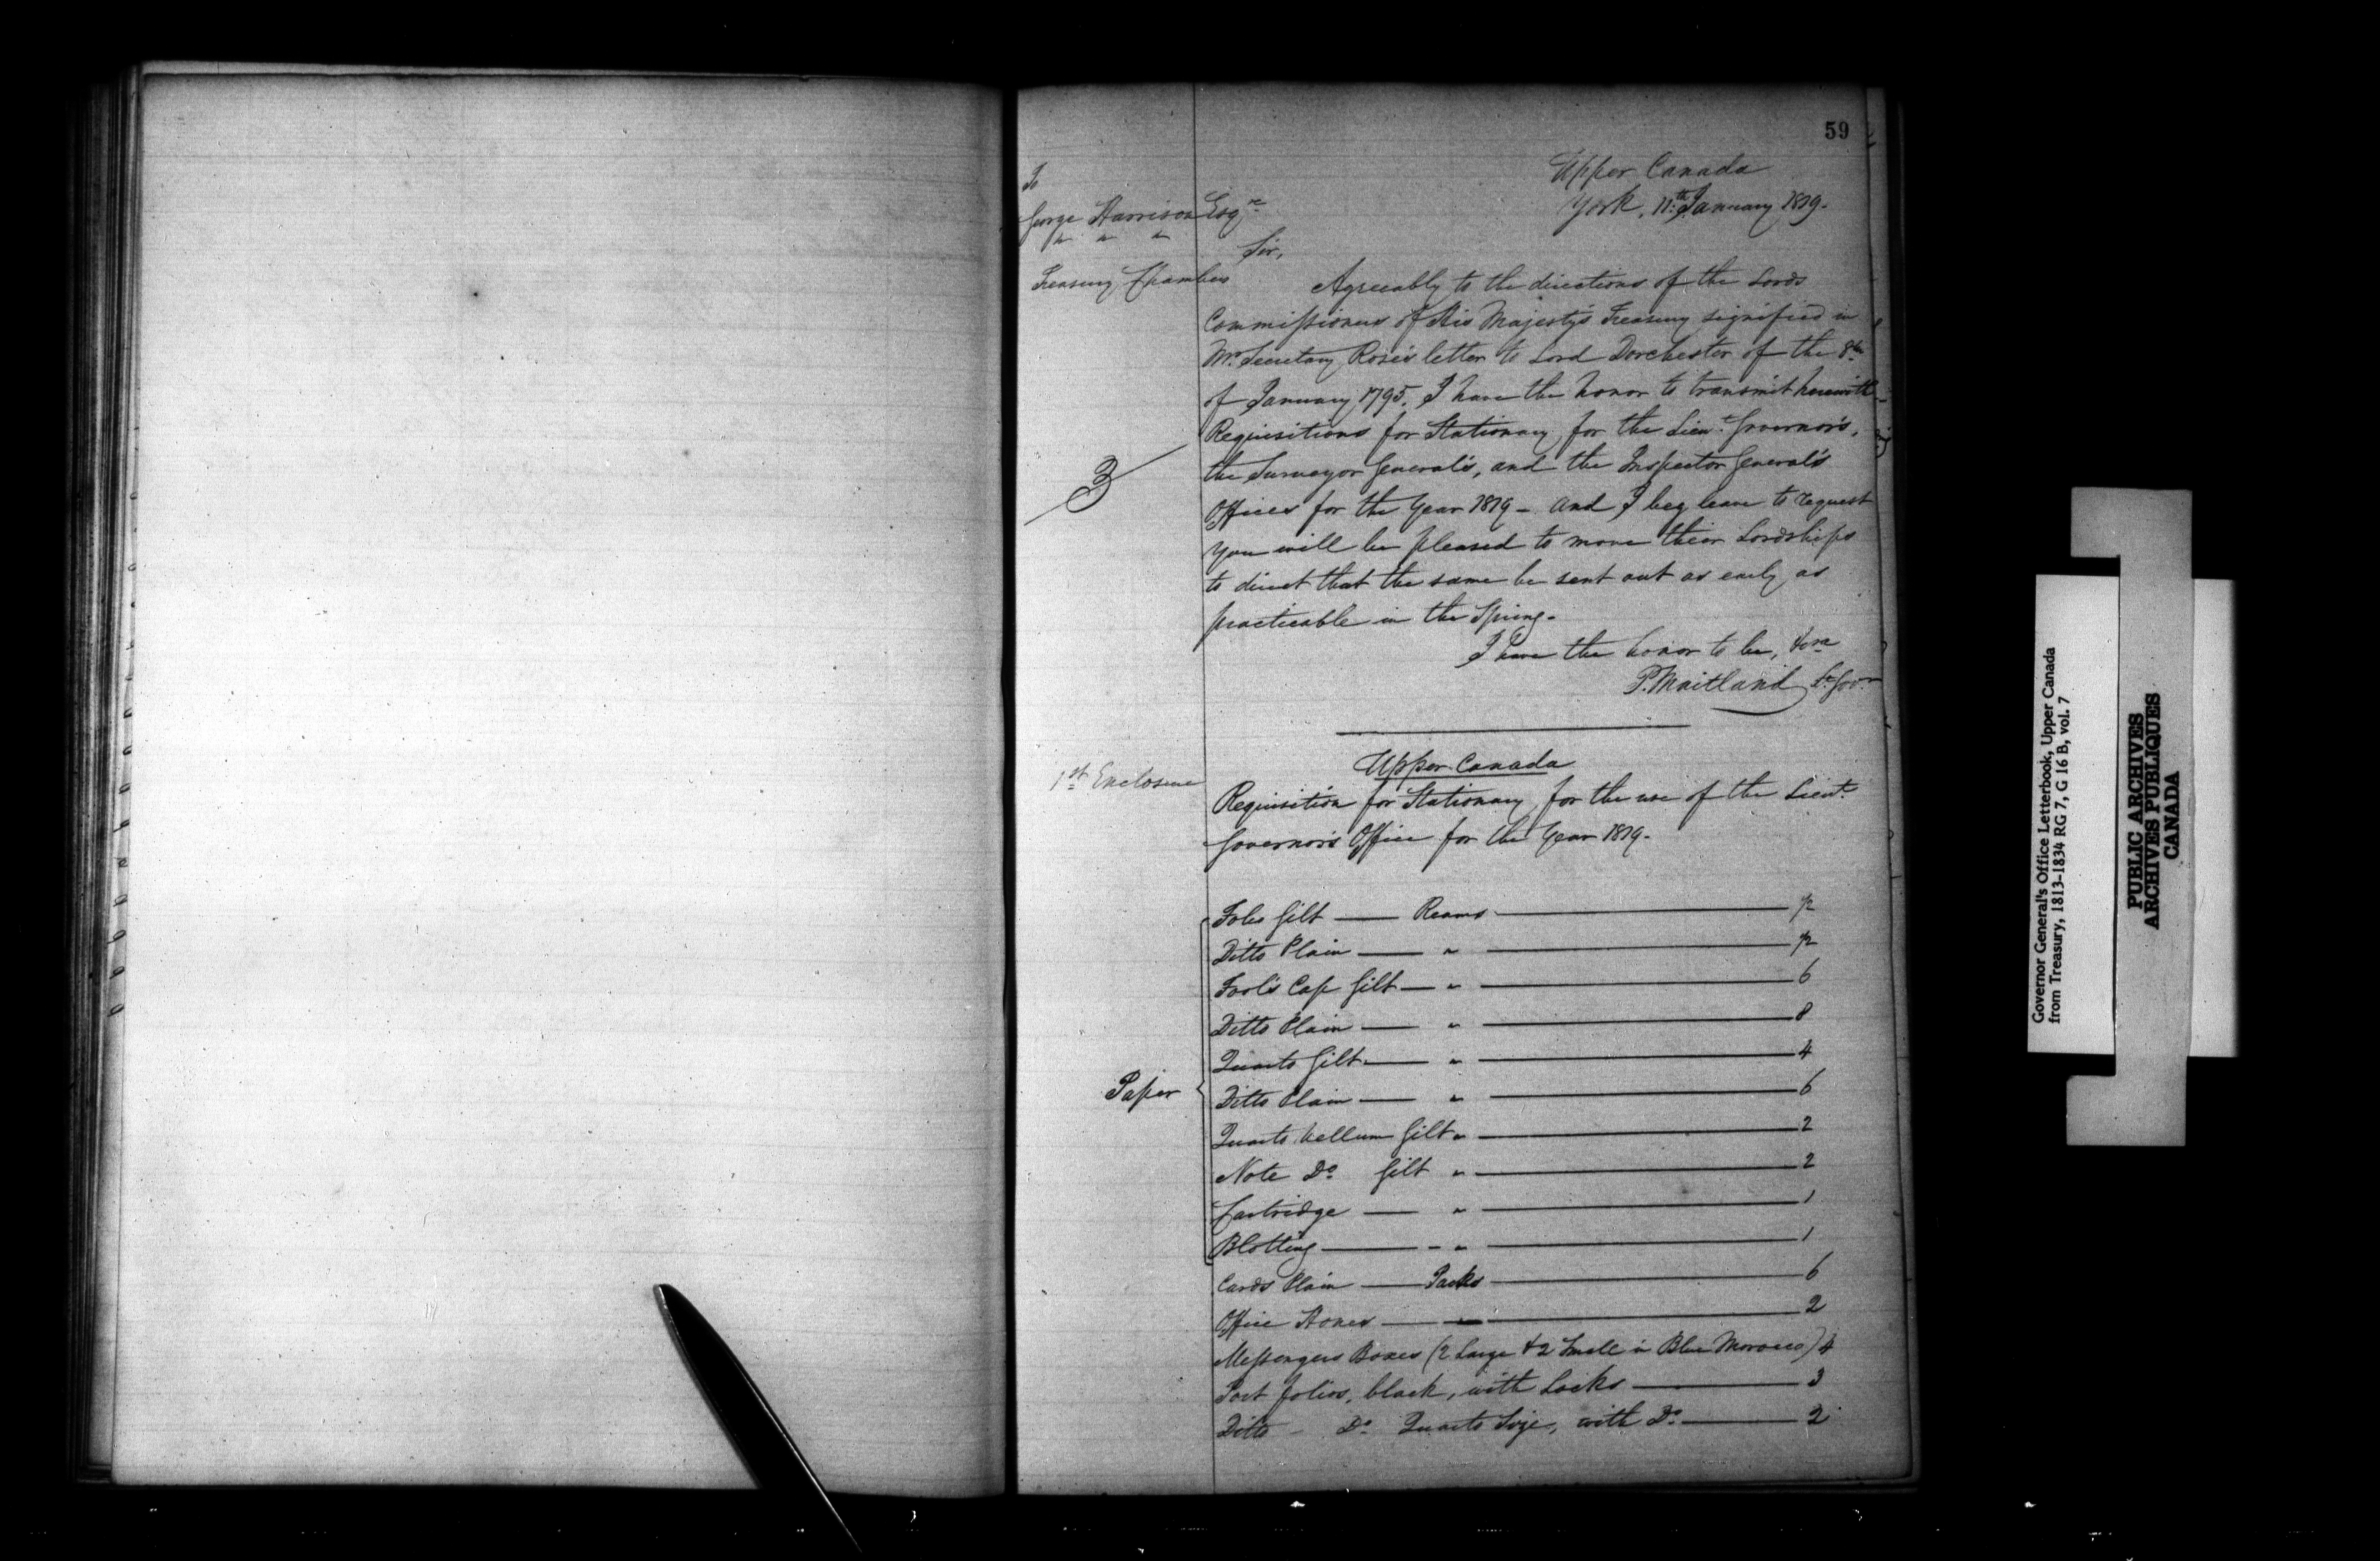 59
Upper Canada
York, 11.th January 1819.
To
George Harrison Esqre
" " "
Treasury Chambers
Sir,
Agreeably to the directions of the Lords
Commissioners of His Majesty's Treasury signified in
Mr. Secretary Rose's letter to Lord Dorchester of the 8th
of January 1795. I have the honor to transmit herewith
Requisitions for Stationary for the Lieut. Governor's,
the Surveyor General's, and the Inspector General's
Offices for the Year 1819 - and I beg leave to request
you will be pleased to move their Lordships
to direct that the same be sent out as early as
practicable in the Spring.
3
I have the honor to be, &ca
P. Maitland Lt. Govr
1st Enclosure
Upper Canada
Requisition for Stationary for the use of the Lieut.
Governor's Office for the Year 1819.
Paper
Folio Gilt — Reams —
Ditto Plain — " —
Fool's Cap Gilt — " — 6
Ditto Plain — " — 8
Quarto Gilt — " — 4
Ditto Plain — " — 6
Quarto Vellum Gilt " — 2
Note Do. Gilt " — 2
Cartridge — " — 1
Blotting — - " — 1
Cards Plain — Packs — 6
Office — " — 2
Messengers Boxes (2 Large & 2 Small in Blue Morocco) 4
Port folios, black, with Locks — 3
Ditto - Do. Quarto Size, with Do. — 2
Governor General's Office Letterbook, Upper Canada
from Treasury, 1813-1834 RG 7, G 16 B, vol. 7
PUBLIC ARCHIVES
ARCHIVES PUBLIQUES
CANADA